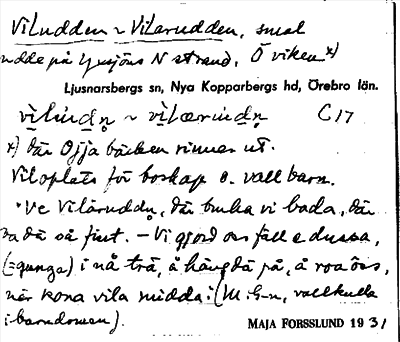 Viludden ~ Vilarudden, smal
udde på Ljusjöns N strand, Ö viken x)
Ljusnarsbergs sn, Nya Kopparbergs hd, Örebro län.
C 17
x) där Ojja bäcken rinner ut.
Viloplats för boskap o. vallbarn.
"Ve Vilaruddn, där bruka vi bada, där
va dä så fint. – Vi gjord oss fall e dussa,
(= gunga) i nå trä, å hängdä på, å roa öss,
när kona vila midda. (M. G-n, vallkulla
i barndomen).
MAJA FORSSLUND 1931